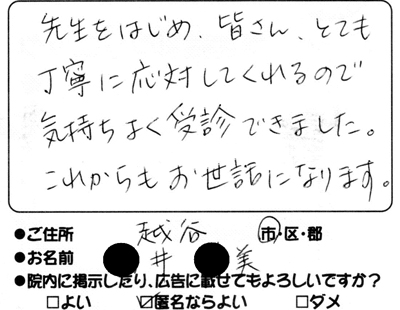 先生をはじめ、皆さん、とても
丁寧に応対してくれるので
気持ちよく受診できました。
これからもお世話になります。
●ご住所 越谷 市・区・郡
●お名前 ●井●美
●院内に掲示したり、広告に載せてもよろしいですか？
□よい ☑匿名ならよい □ダメ